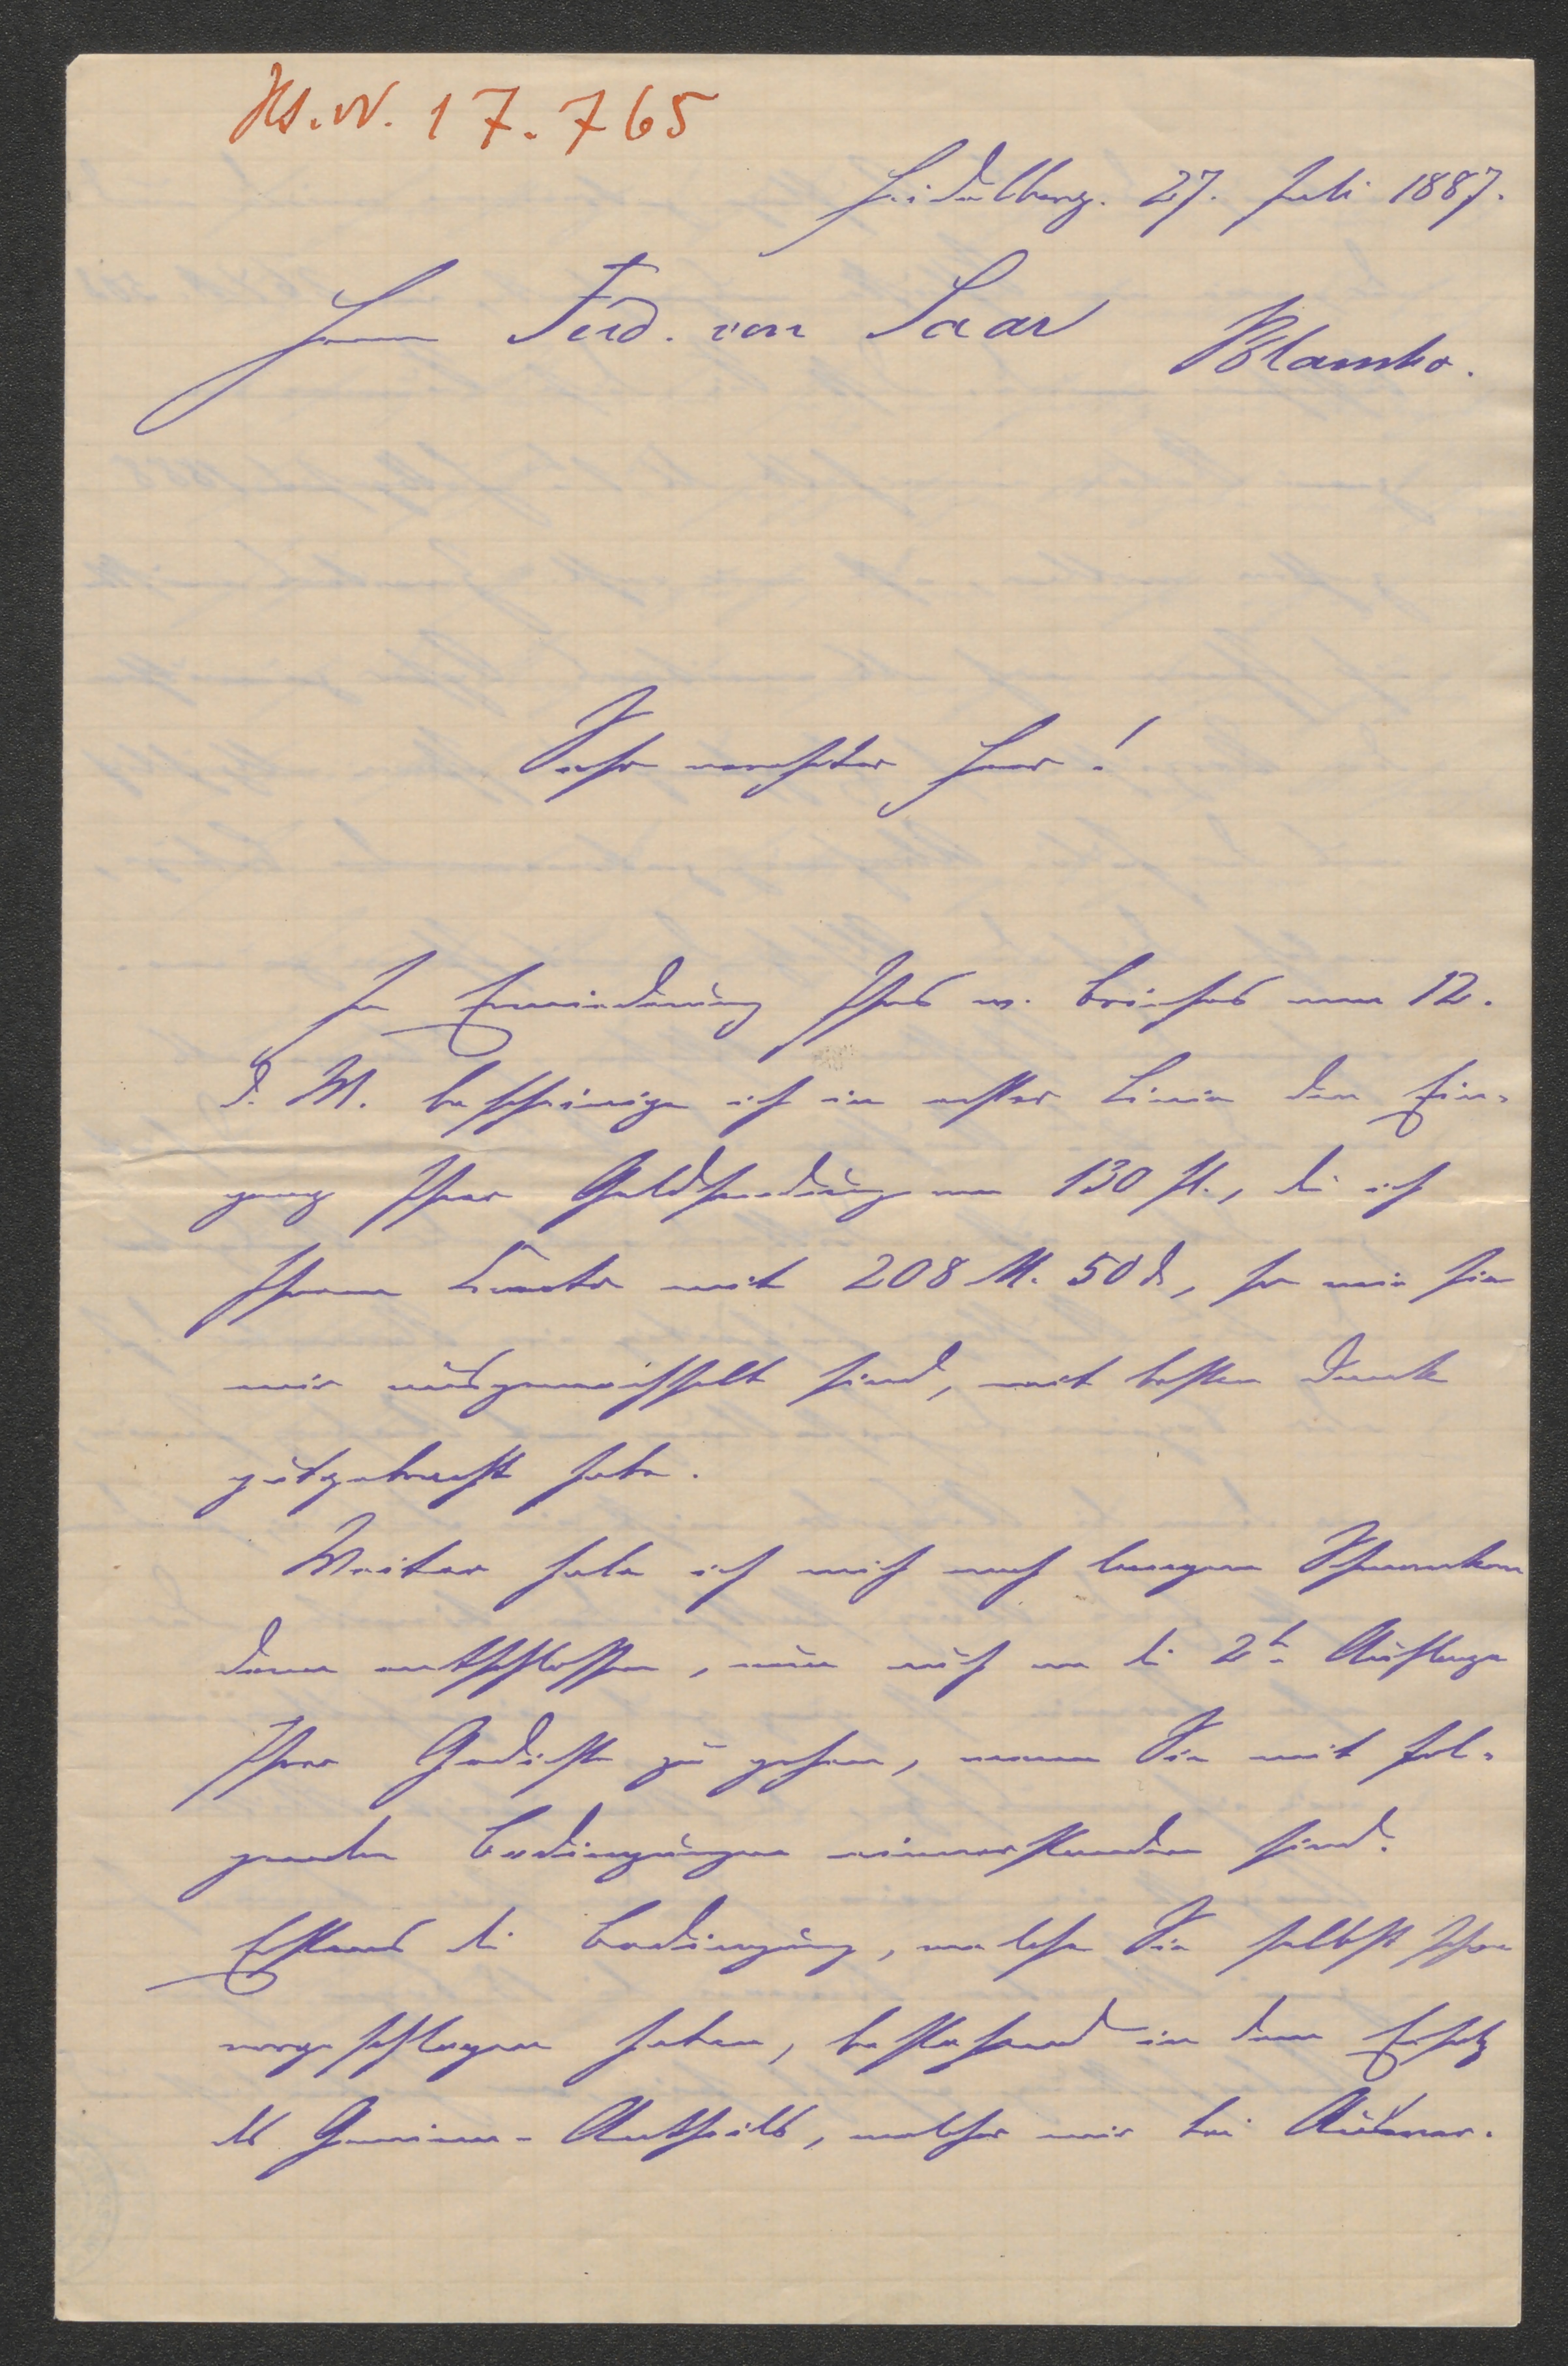 Hs. N. 17.765
Heidelberg. 27. Juli 1887.
Herrn Ferd. von Saar
Blansko.
Sehr verehrter Herr!
In Erwiederung Ihres w. Briefes vom 12.
d. M. bescheinige ich in erster Linie den Ein-
gang Ihrer Geldsendung von 130 fl., die ich
Ihrem Conto mit 208 M. 50 d, so wie sie
mir ausgewechselt sind, mit bestem Dank
gutgebracht habe.
Weiter habe ich mich nach langem Schwanken
denn entschlossen, nun auch an die 2te Auflage
Ihrer Gedichte zu gehen, wenn Sie mit fol-
genden Bedingungen einverstanden sind.
Erstens die Bedingung, welche Sie selbst schon
vorgeschlagen haben, bestehend in dem Ersatz
des Gewinn-Antheils, welcher mir bei